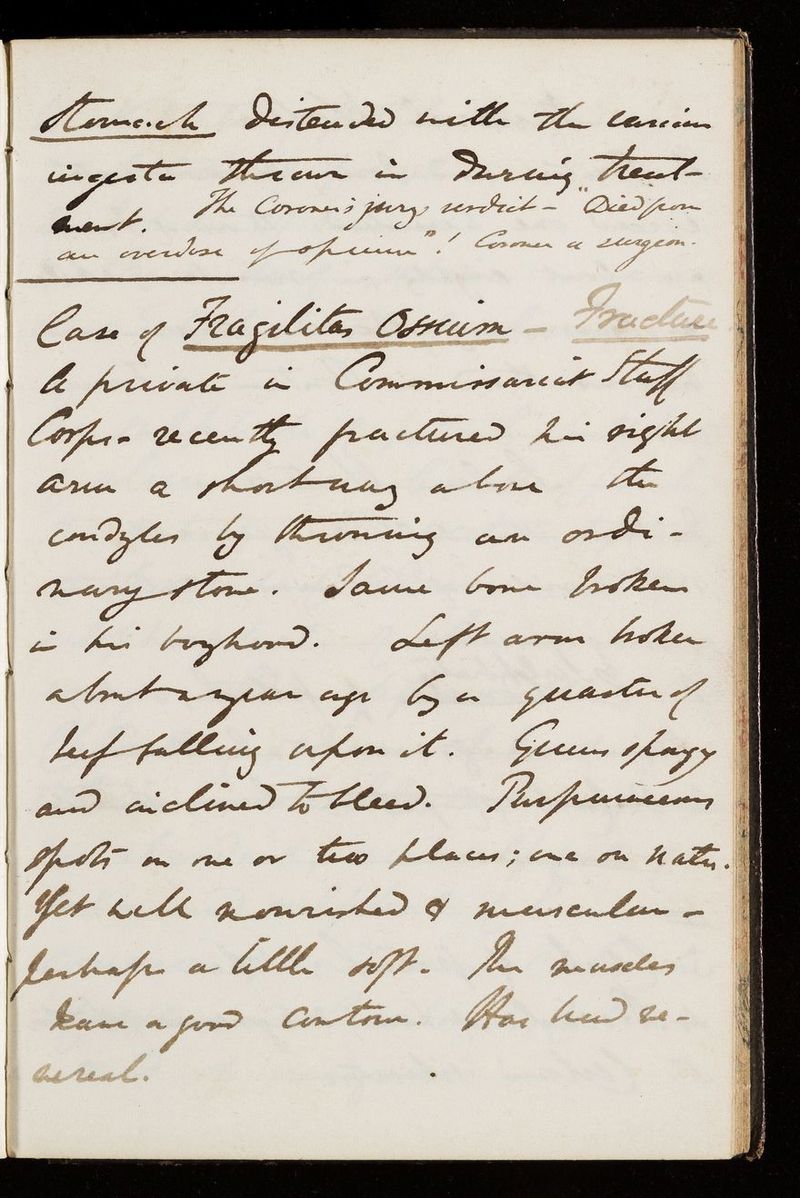 Stomach distended with the various
ingesta thrown in during treat-
ment. The Coroner's jury verdict - "Died from
an overdose of opium"! Coroner a surgeon.
Case of Fragilitas Ossium - Fracture
A private in Commissariat Staff
Corps - recently fractured his right
arm a short way above the
condyles by throwing an ordi-
nary stone. Same bone broken
in his boyhood. Left arm broken
about a year ago by a quarter of
beef falling upon it. Gums spongy
and inclined to bleed. Purpuraceous
spots on one or two places; one on nates.
Yet well nourished & muscular -
perhaps a little soft. The muscles
have a good contour. Has had ve-
nereal.